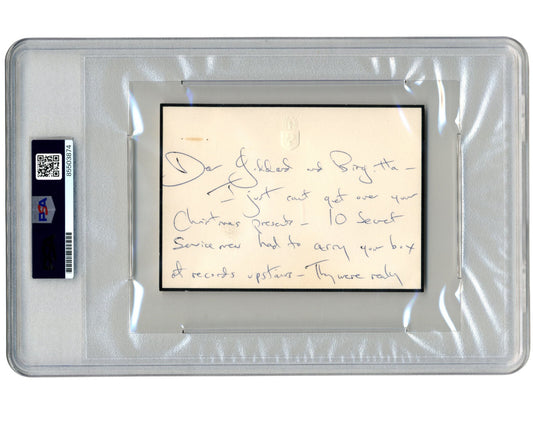 Dear Goddard and Brigitta —
I just can't get over your
Christmas presents — 10 Secret
Servicemen had to carry your box
of records upstairs — They were really
PSA
85503874